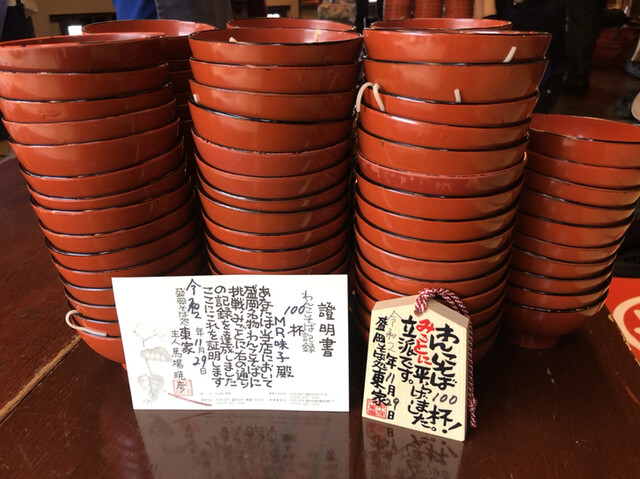 證明書
わんこそば記録
100杯
MR味子殿
あなたは当店において
盛岡名物わんこそばに
挑戦みごとに右の通り
の記録を達成しました
ここにこれを証明します
令和2年11月29日
盛岡そば処東家
主人馬場暁彦
わんこそば100杯!
みごとに平げました。
立派です。
令和2年11月29日
盛岡そば処東家